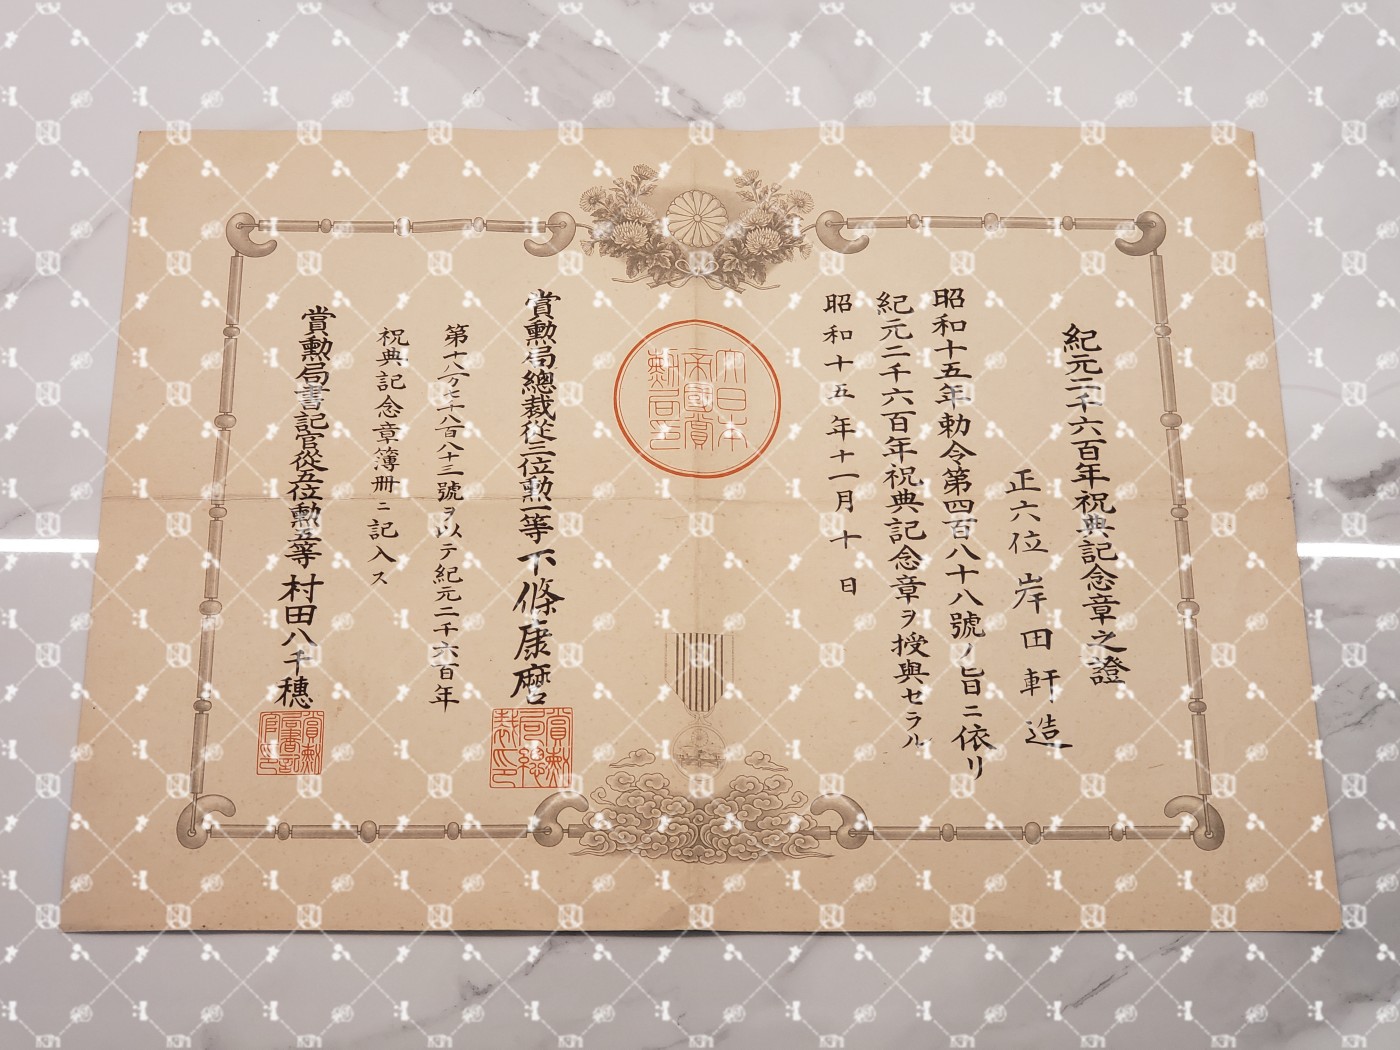 紀元二千六百年祝典記念章之證
正六位 岸田軒造
昭和十五年勅令第四百八十八號ノ旨ニ依リ
紀元二千六百年祝典記念章ヲ授與セラル
昭和十五年十一月十日
大日本
帝國賞
勲局印
賞勲局總裁從三位勲一等下條康麿
賞勲
局總
裁印
第十八万七千八百八十三號ヲ以テ紀元二千六百年
祝典記念章簿冊ニ記入ス
賞勲局書記官從五位勲五等村田八千穗
賞勲局
書記
官印